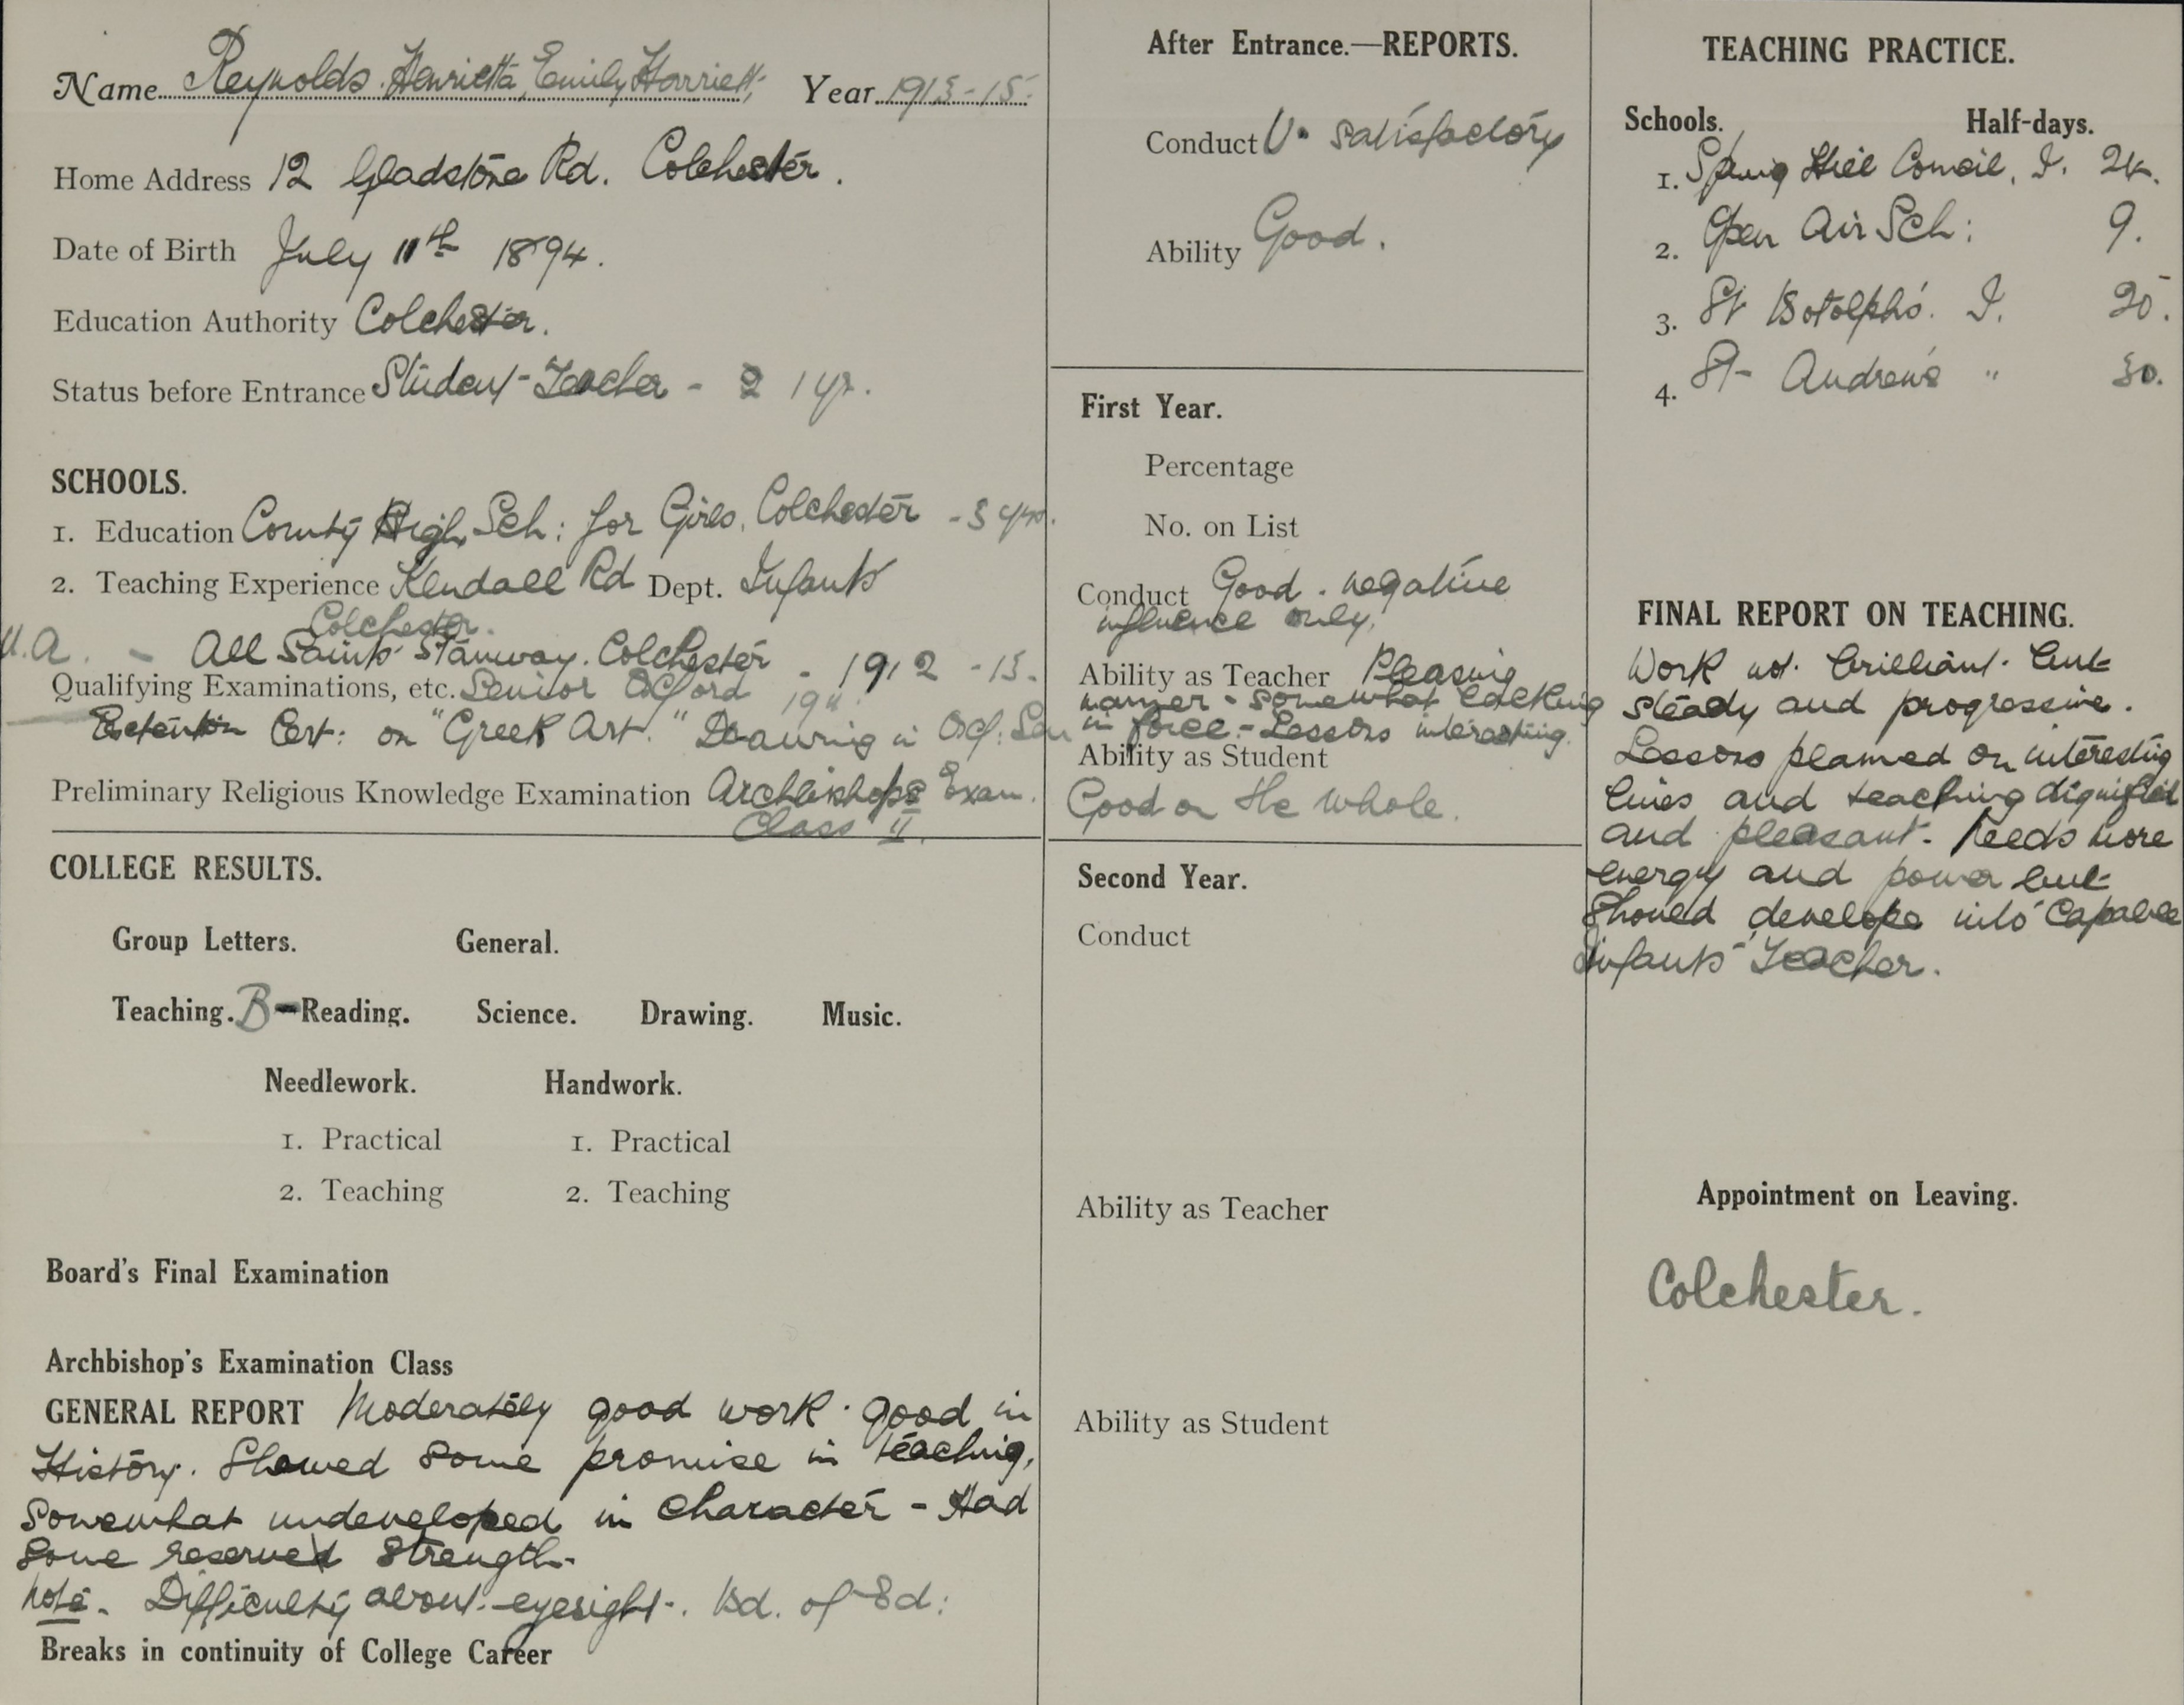 Name Reynolds. Henrietta, Emily, Harriett, Year 1913-15.
Home Address 12 Gladstone Rd. Colchester.
Date of Birth July 11th 1894.
Education Authority Colchester.
Status before Entrance Student-Teacher - 1 yr.
SCHOOLS.
1. Education County High Sch: for Girls, Colchester - 3 yrs.
2. Teaching Experience Kendall Rd Dept. Infants
Colchester.
U.A. - All Saints Stanway. Colchester - 1912 - 13.
Qualifying Examinations, etc. Senior Oxford 1911
Extention Cert: on "Greek Art." Drawing in Oxf: Sen
Preliminary Religious Knowledge Examination Archbishops Exam.
Class II.
COLLEGE RESULTS.
Group Letters. General.
Teaching. B- Reading. Science. Drawing. Music.
Needlework. Handwork.
1. Practical 1. Practical
2. Teaching 2. Teaching
Board's Final Examination
Archbishop's Examination Class
GENERAL REPORT Moderately good work. good in
History. Showed some promise in teaching,
Somewhat undeveloped in character - Had
some reserved strength.
Note. Difficulty about eyesight. Bd. of Ed:
Breaks in continuity of College Career
After Entrance.—REPORTS.
Conduct V. satisfactory
Ability Good.
First Year.
Percentage
No. on List
Conduct Good. negative
influence only.
Ability as Teacher Pleasing
manner - somewhat lacking
in force. - Lessons interesting.
Ability as Student
Good on the whole.
Second Year.
Conduct
Ability as Teacher
Ability as Student
TEACHING PRACTICE.
Schools. Half-days.
1. Spring Hill Council, I. 24.
2. Open Air Sch: 9.
3. St Botolph's. I. 20.
4. St Andrew's " 30.
FINAL REPORT ON TEACHING.
Work not brilliant but
steady and progressive.
Lessons planned on interesting
lines and teaching dignified
and pleasant. Needs more
energy and power but
should develope into capable
Infants' Teacher.
Appointment on Leaving.
Colchester.